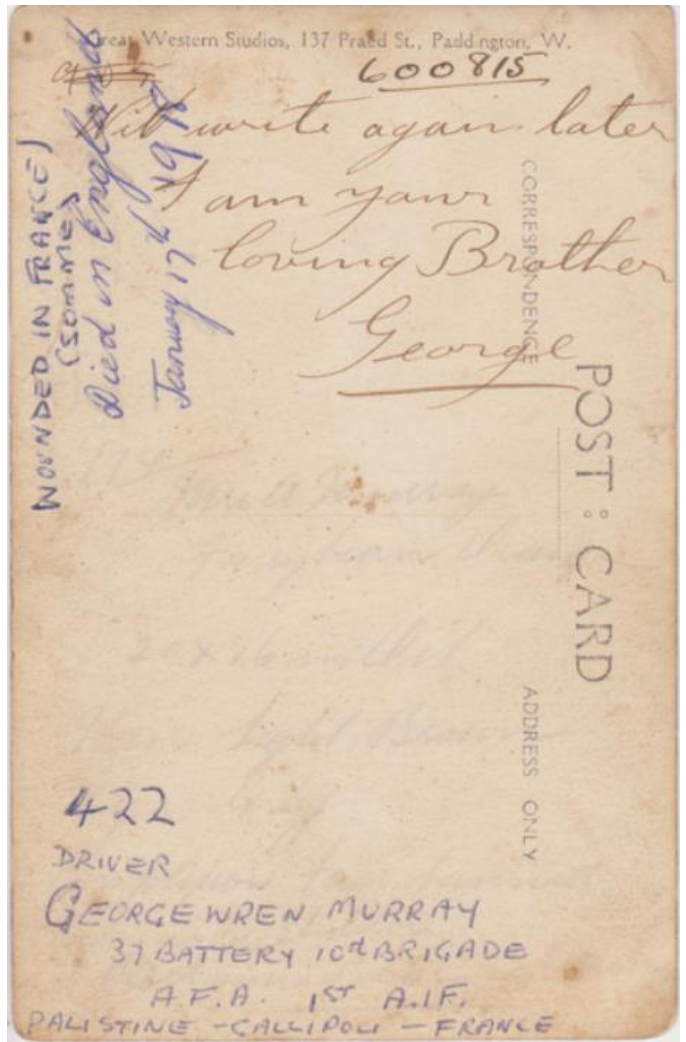 Great Western Studios, 137 Praed St., Paddington, W.
600815
Will write again later
I am your
loving Brother
George
WOUNDED IN FRANCE)
(SOMME)
Died in England
January 17th 1918
CORRESPONDENCE
POST : CARD
ADDRESS ONLY
Murray
light Brown
422
DRIVER
GEORGE WREN MURRAY
37 BATTERY 10th BRIGADE
A.F.A. 1ST A.I.F.
PALISTINE - GALLIPOLI - FRANCE